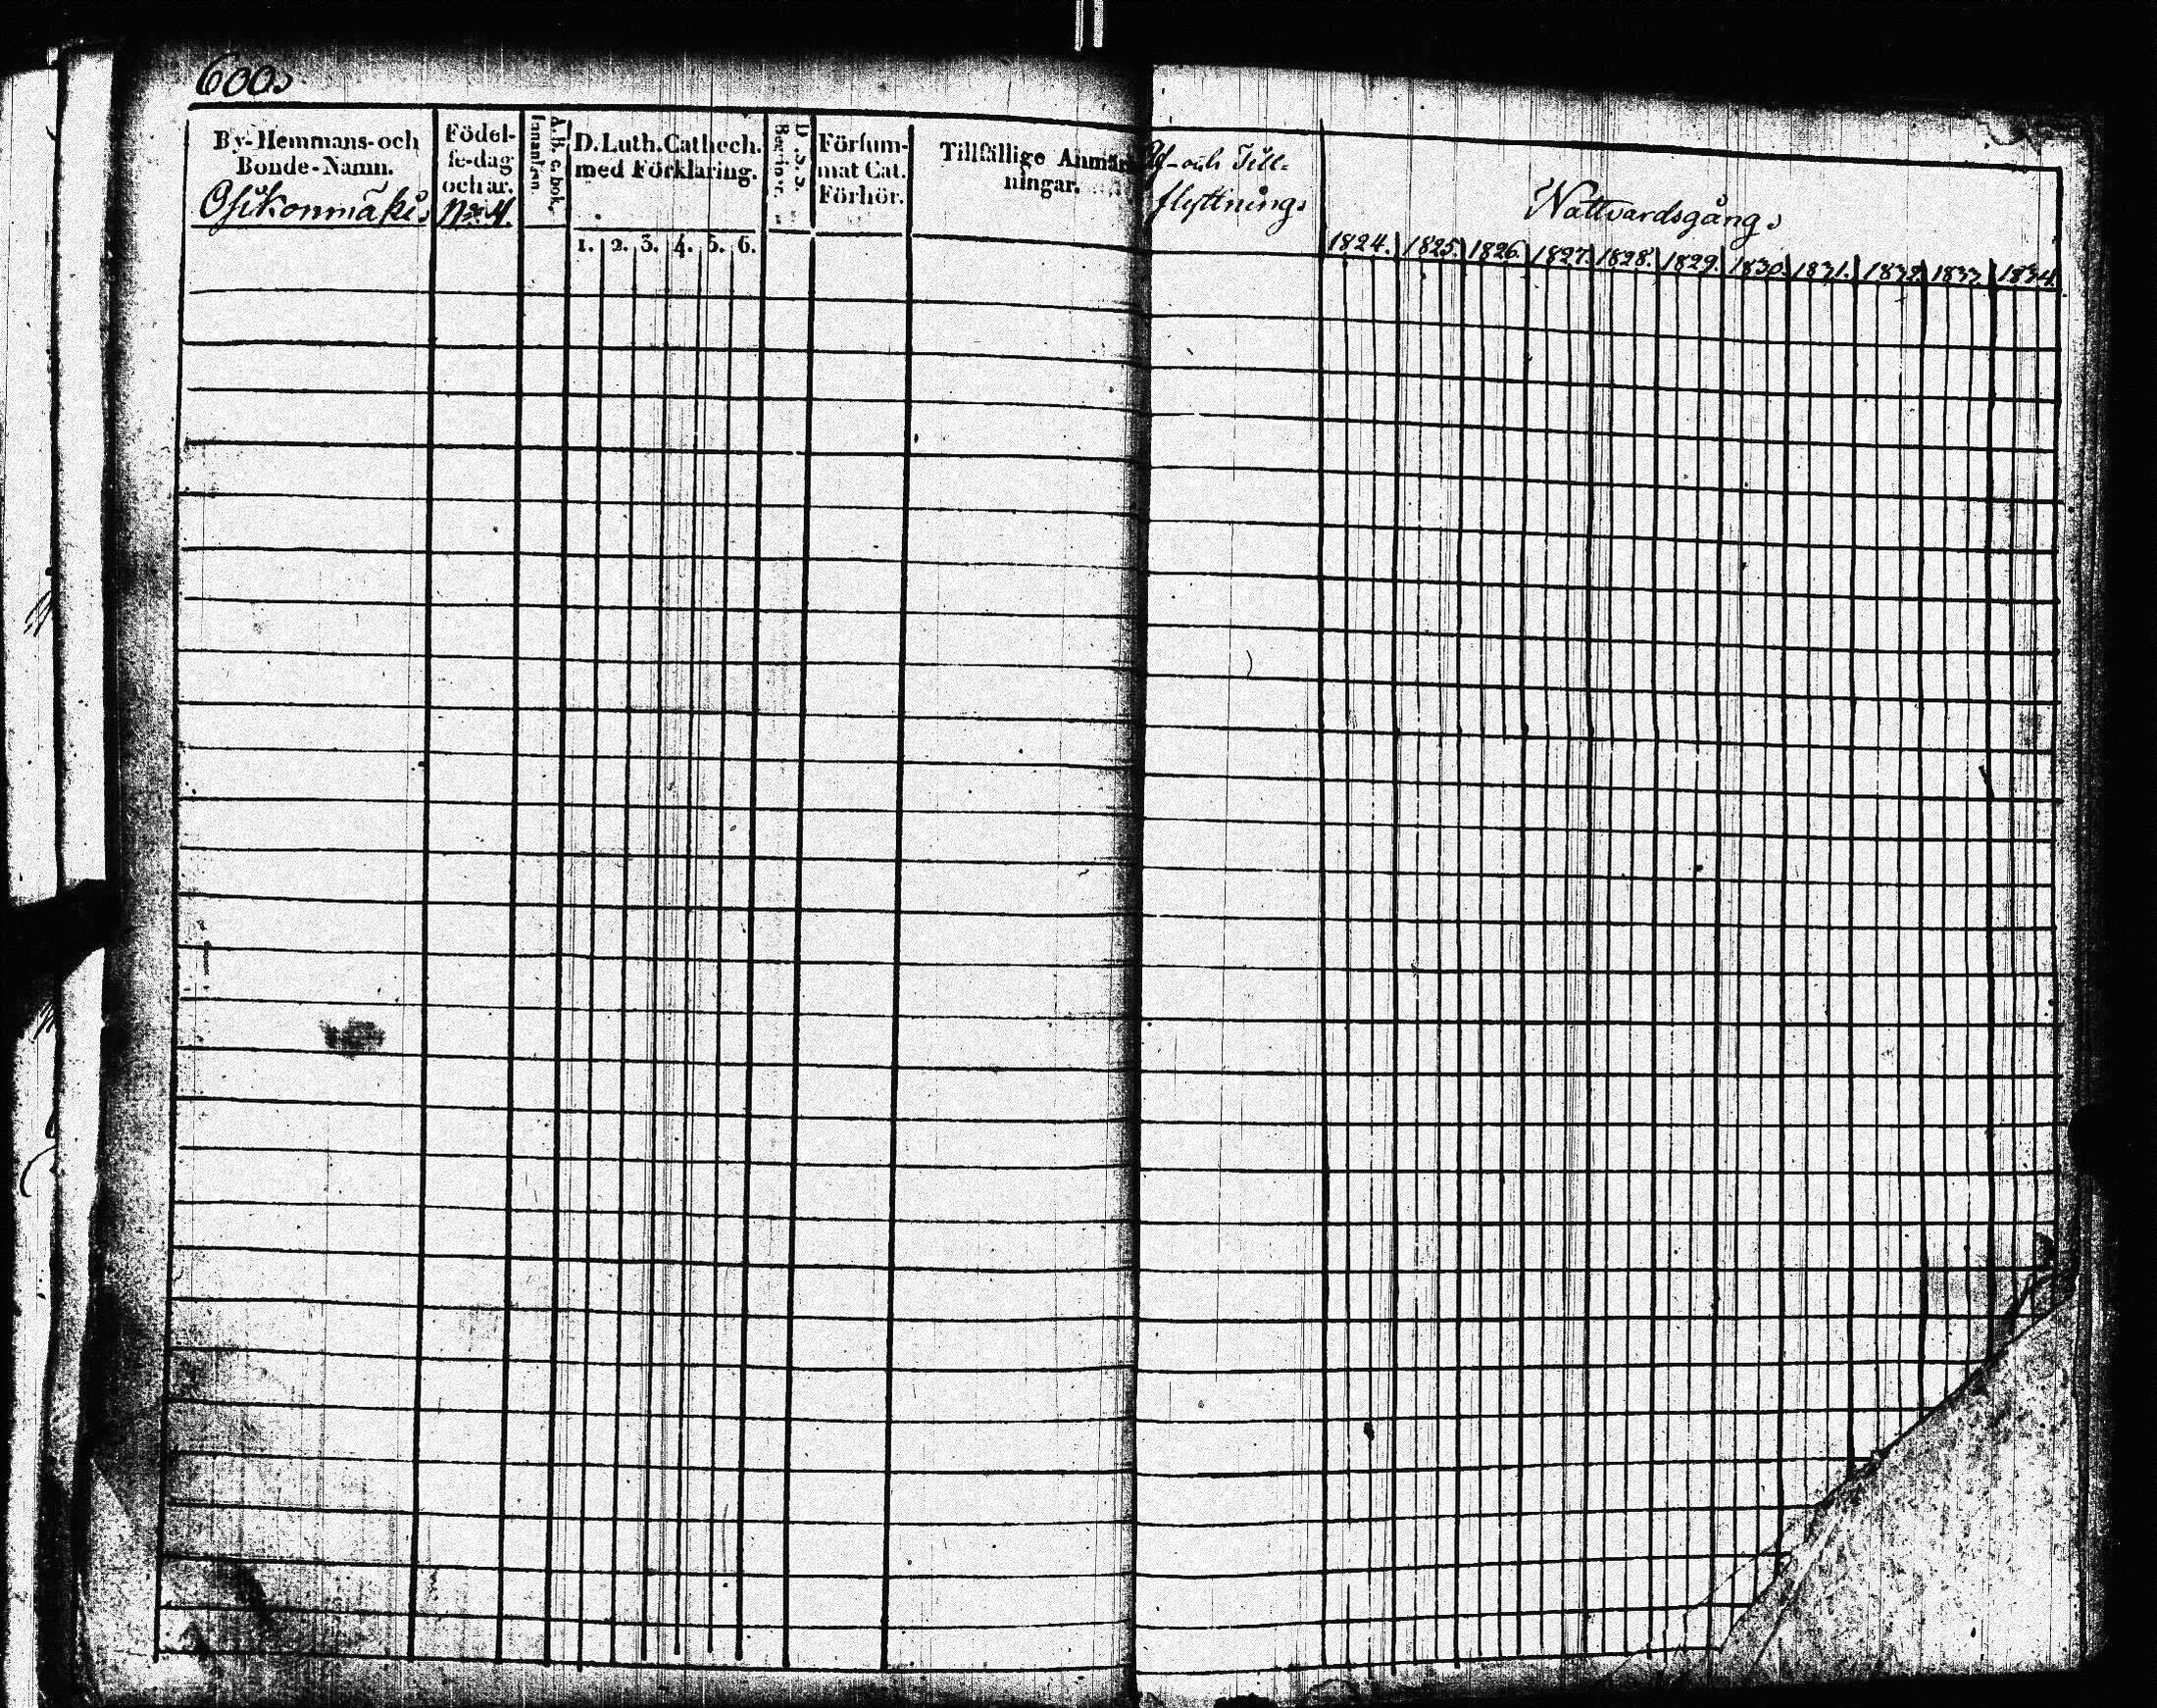 600.
By-Hemmans-och
Bonde-Namn.
Osikonmäki.
Födel-
se-dag
och år.
No 4.
A.B.C. bok.
Innanläsn.
D. Luth. Cathech.
med Förklaring.
1. 2. 3. 4. 5. 6.
D. S. S.
Begriper.
Försum-
mat Cat.
Förhör.
Tillfällige Anmärk-
ningar.
Af- och Till-
flyttning.
Nattvardsgång.
1824. 1825. 1826. 1827. 1828. 1829. 1830. 1831. 1832. 1833. 1834.